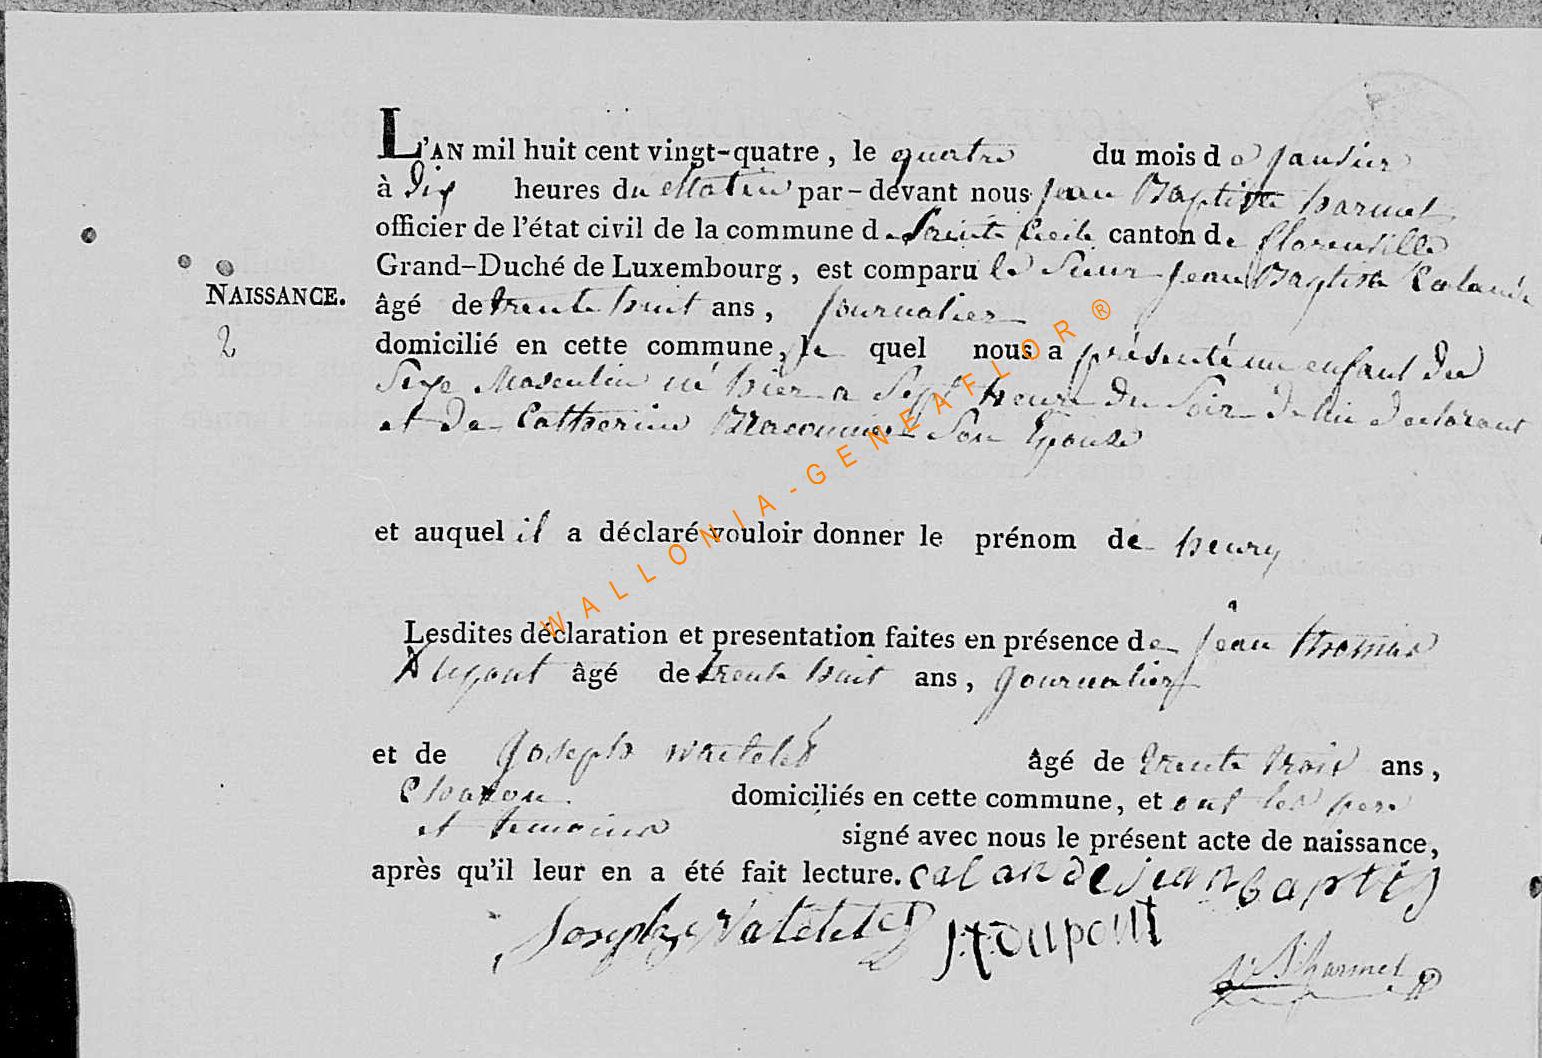 L'AN mil huit cent vingt-quatre, le quatre du mois de janvier
à Dix heures du Matin par-devant nous jean Baptiste harmel
officier de l'état civil de la commune de Sainte Cecile canton de florenville
Grand-Duché de Luxembourg, est comparu le Sieur jean Baptiste Calande
NAISSANCE.
âgé de trente huit ans, journalier
2
domicilié en cette commune, le quel nous a présenté un enfant du
Sexe Masculin né hier a Sept heure du Soir de lui declarant
et de Catherine Braconnier Son Epouse
et auquel il a déclaré vouloir donner le prénom de henry
Lesdites déclaration et presentation faites en présence de jean thomas
âgé de trente huit ans, journalier
et de joseph watelet âgé de trente trois ans,
domiciliés en cette commune, et ont les pere
et temoins signé avec nous le présent acte de naissance,
après qu'il leur en a été fait lecture. calande jean baptis
Joseph Watelet J:t: Dupont
J B harmel
WALLONIA-GENEAFLOR®